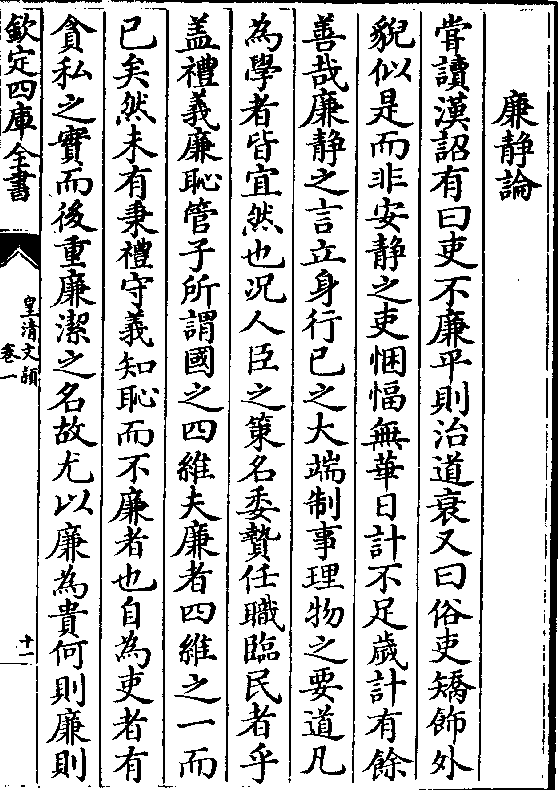 廉静論
嘗讀漢詔有曰吏不廉平則治道衰又曰俗吏矯飾外
貌似是而非安静之吏悃愊無華日計不足歲計有餘
善哉廉静之言立身行已之大端制事理物之要道凡
為學者皆宜然也况人臣之策名委贄任職臨民者乎
盖禮義廉恥管子所謂國之四維夫廉者四維之一而
已矣然未有秉禮守義知恥而不廉者也自為吏者有
貪私之實而後重廉潔之名故尤以廉為貴何則廉則
欽定四庫全書
皇清文穎
卷一
十一